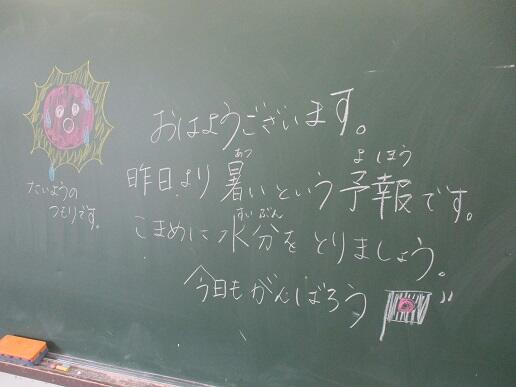 おはようございます。
昨日より暑いという予報です。
こまめに水分をとりましょう。
今日もがんばろう
たいようの
つもりです。